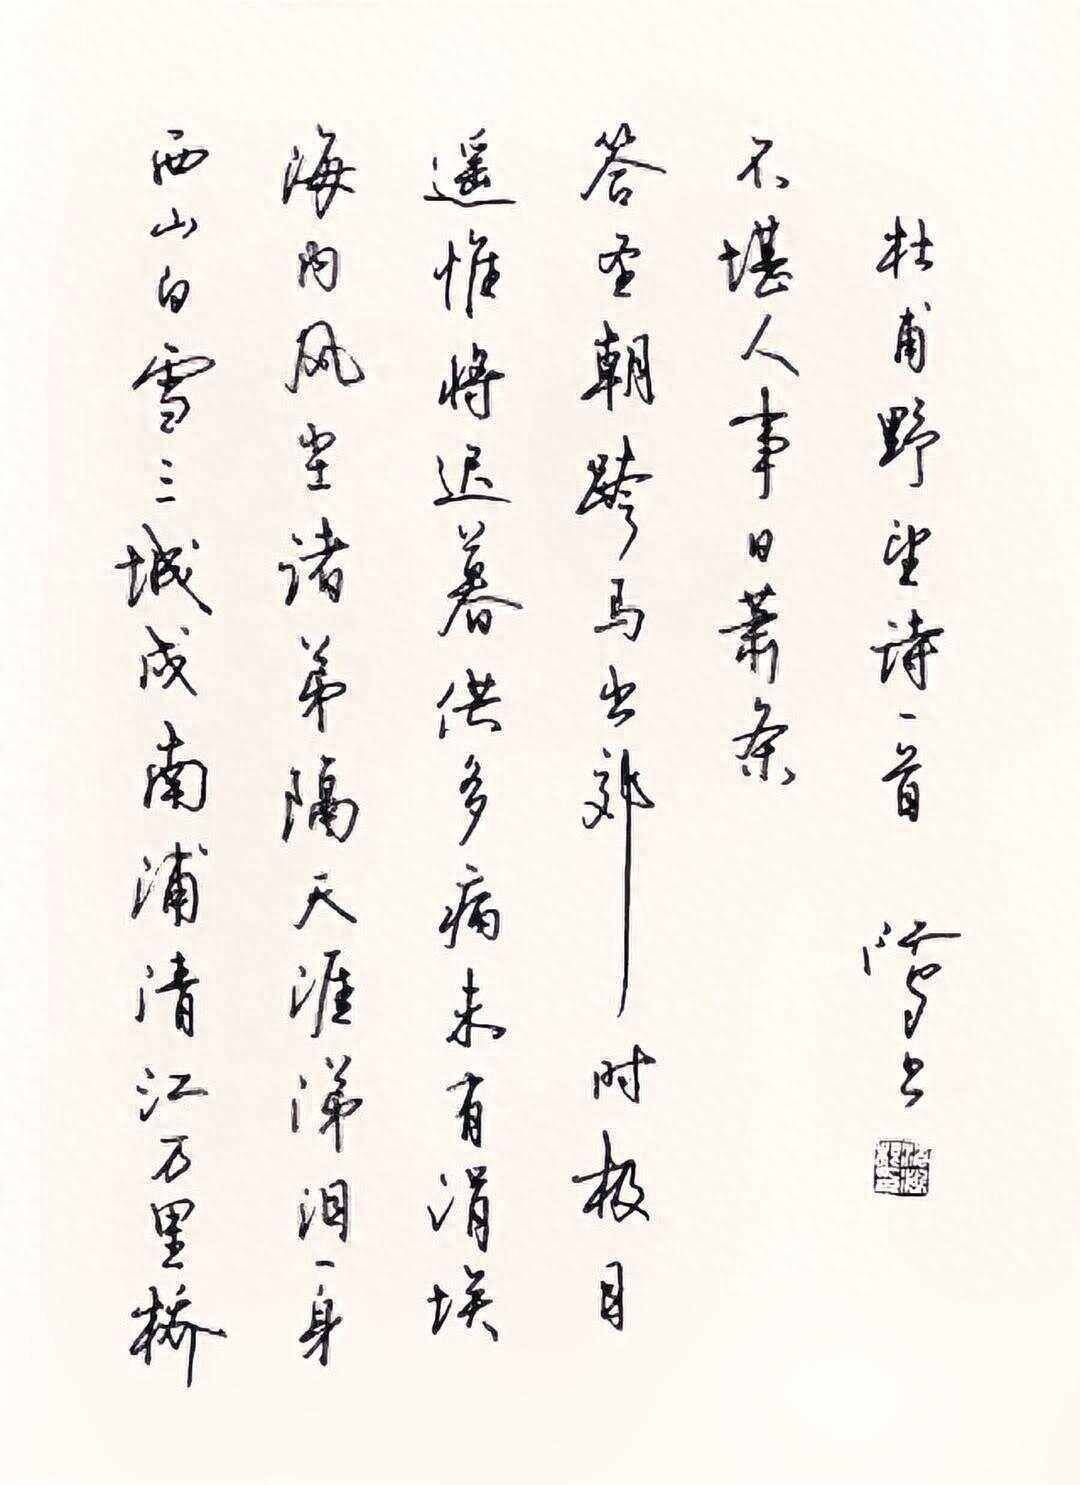 西山白雪三城戍南浦清江万里桥
海内风尘诸弟隔天涯涕泪一身
遥惟将迟暮供多病未有涓埃
答圣朝跨马出郊时极目
不堪人事日萧条
杜甫野望诗一首 书